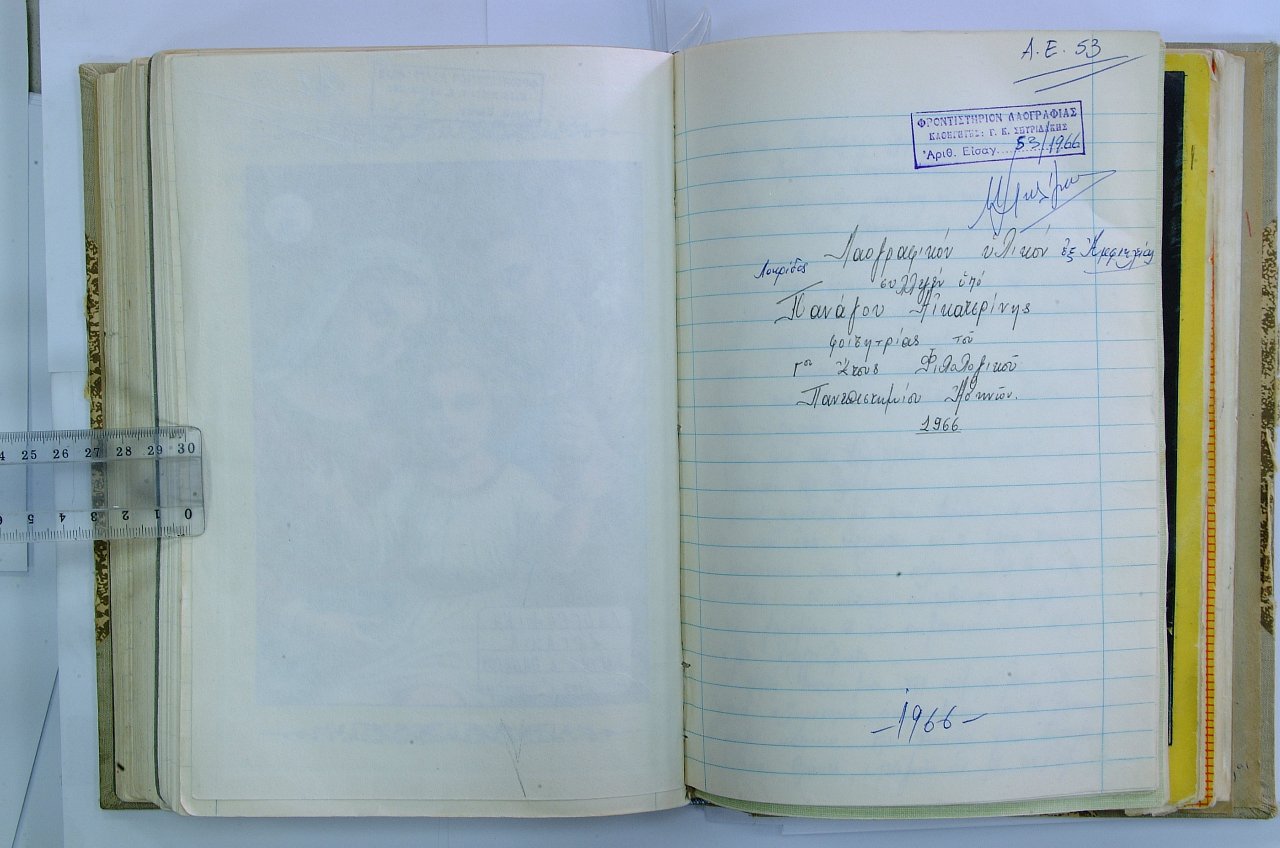 Α.Ε. 53
ΦΡΟΝΤΙΣΤΗΡΙΟΝ ΛΑΟΓΡΑΦΙΑΣ
ΚΑΘΗΓΗΤΗΣ: Γ. Κ. ΣΠΥΡΙΔΑΚΗΣ
Ἀριθ. Εἰσαγ. 53/1966
Λαογραφικόν ὑλικόν ἐξ Ἀμφικλείας
Λοκρίδος
συλλεγέν ὑπό
Πανάγου Αἰκατερίνης
φοιτητρίας τοῦ
Γου ἔτους Φιλολογικοῦ
Πανεπιστημίου Ἀθηνῶν.
1966
-1966-
24 25 26 27 28 29 30
6 5 4 3 2 1 0